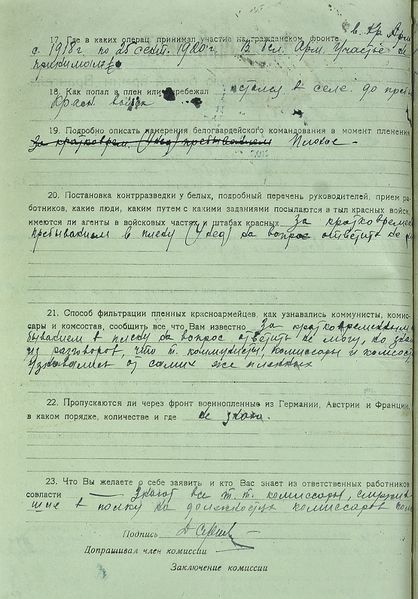 17. Где в каких операц. принимал участие на гражданском фронте в. Кр. Арм
с 1918 г по 25 сент. 1920 г. В Бел. Арм. участие не
принимал
18. Как попал в плен или перебежал остался в селе до при
Красн. войск
19. Подробно описать намерения белогвардейского командования в момент пленени
Плохое —
20. Постановка контрразведки у белых, подробный перечень руководителей, прием ра-
ботников, какие люди, каким путем с какими заданиями посылаются в тыл красных войск,
имеются ли агенты в войсковых частях и штабах красных за кратковремен
пребыванием в плену на вопрос ответить не
21. Способ фильтрации пленных красноармейцев, как узнавались коммунисты, комис-
сары и комсостав, сообщить все, что Вам известно за кратковременным
быванием в плену на вопрос ответить не могу, но знаю
из разговоров, что т. коммунисты, комиссары и комсостав
узнавались от самих же пленных
22. Пропускаются ли через фронт военнопленные из Германии, Австрии и Франции,
в каком порядке, количестве и где не знаю.
23. Что Вы желаете о себе заявить и кто Вас знает из ответственных работников
совласти — Знают все т.т. комиссары,
шие в полку на должности комиссара
Подпись
Допрашивал член комиссии
Заключение комиссии